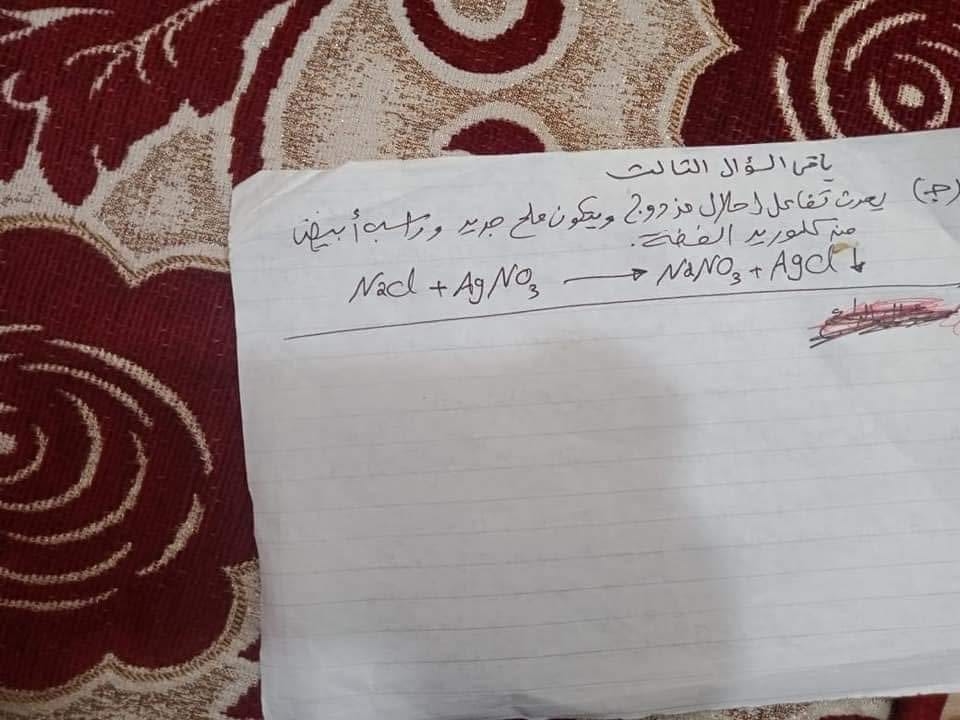 باقى السؤال الثالث
(جـ) يحدث تفاعل احلال مزدوج ويتكون ملح جديد وراسب أبيض
من كلوريد الفضة.
NaCl + AgNO₃ ⟶ NaNO₃ + AgCl ↓